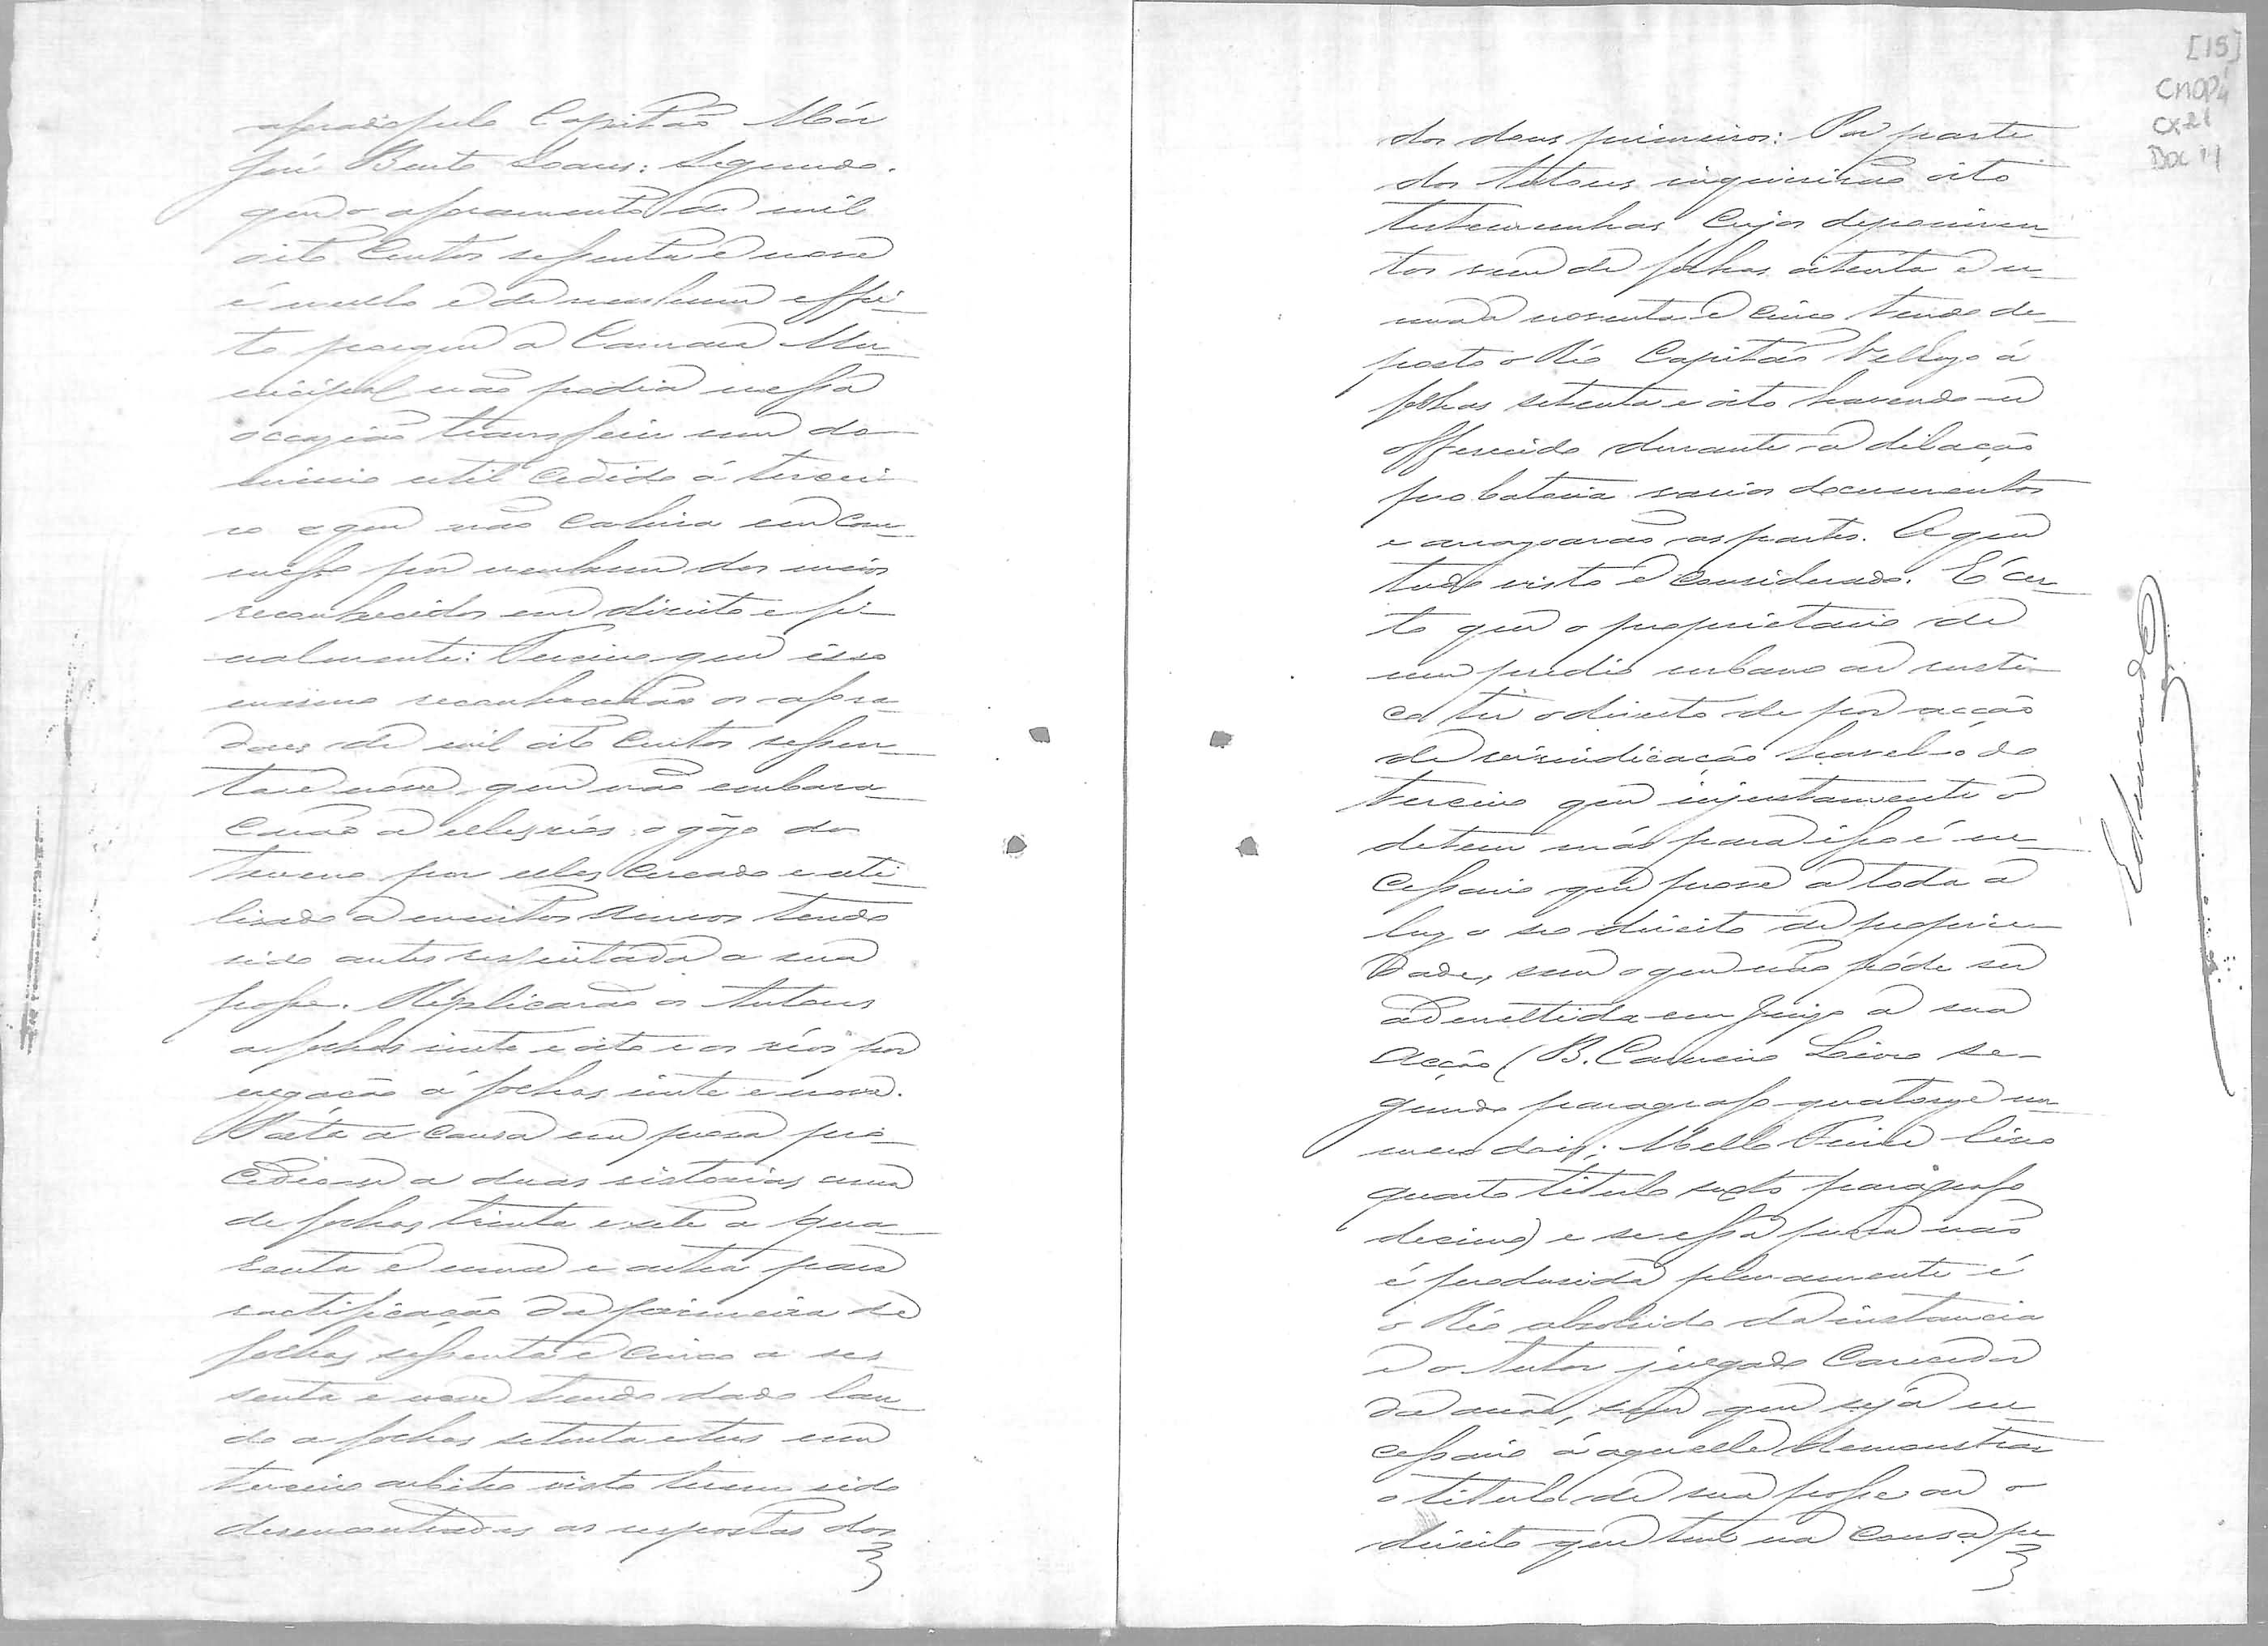 aforado pelo Capitão Mór
José Bento Soares: Segundo.
que o aforamento de mil
oito centos sessenta e nove
é nullo e de nenhum effei-
to porque a Camara Mu-
nicipal não podia nessa
occazião transferir um do-
minio util cedido á tercei-
ro e que não cahira em com-
misso por nenhum dos meios
reconhecidos em direito e fi-
nalmente: Terceiro que isso
mesmo reconhecerão os afora-
dores de mil oito centos sessen-
ta e nove, que não embara-
çarão a elles réos o gôzo do
terreno por elles cercado e uti-
lisado a muitos annos tendo
sido antes respeitada a sua
posse. Replicarão os Autores
a folhas vinte e oito e os réos por
negação á folhas vinte e nove.
Posta a causa em prova pro-
cedeo-se a duas vistorias uma
de folhas trinta e sete a qua-
renta e uma e outra para
ractificação da primeira de
folhas sessenta e cinco a ses-
senta e nove tendo dado lau-
do a folhas setenta e tres um
terceiro arbitro visto terem sido
desencontradas as respostas dos
[15]
CMOP
CX 21
DOC 14
dos dous primeiros: Por parte
dos Autores inquirirão oito
testemunhas cujos depoimen-
tos vem de folhas oitenta e u-
ma a noventa e cinco tendo de-
posto o Réo Capitão Vellozo á
folhas setenta e oito havendo-se
offerecido durante a dilação
probatoria varios documentos
e arrazoarão as partes. O que
tudo visto e considerado. É cer-
to que o proprietario de
um predio urbano ou rusti-
co tem o direito de por acção
de reivindicação havel-o do
terceiro que injustamente o
detem más para isso é ne-
cessario que prove a toda a
luz o seo direito de proprie-
dade, sem o que não póde ser
admettida em Juizo a sua
Acção (B. Carneiro Livro se-
gundo paragrafo quatorze nu-
mero dois; Mello Freire livro
quarto titulo sexto paragrafo
decimo) e se essa prova não
é produsida plenamente é
o Réo absolvido da instancia
e o Autor julgado carecedor
da acção, sem que seja ne-
cessario á aquelle demonstrar
o titulo de sua posse ou o
direito que tem na causa pe-
Edmundo